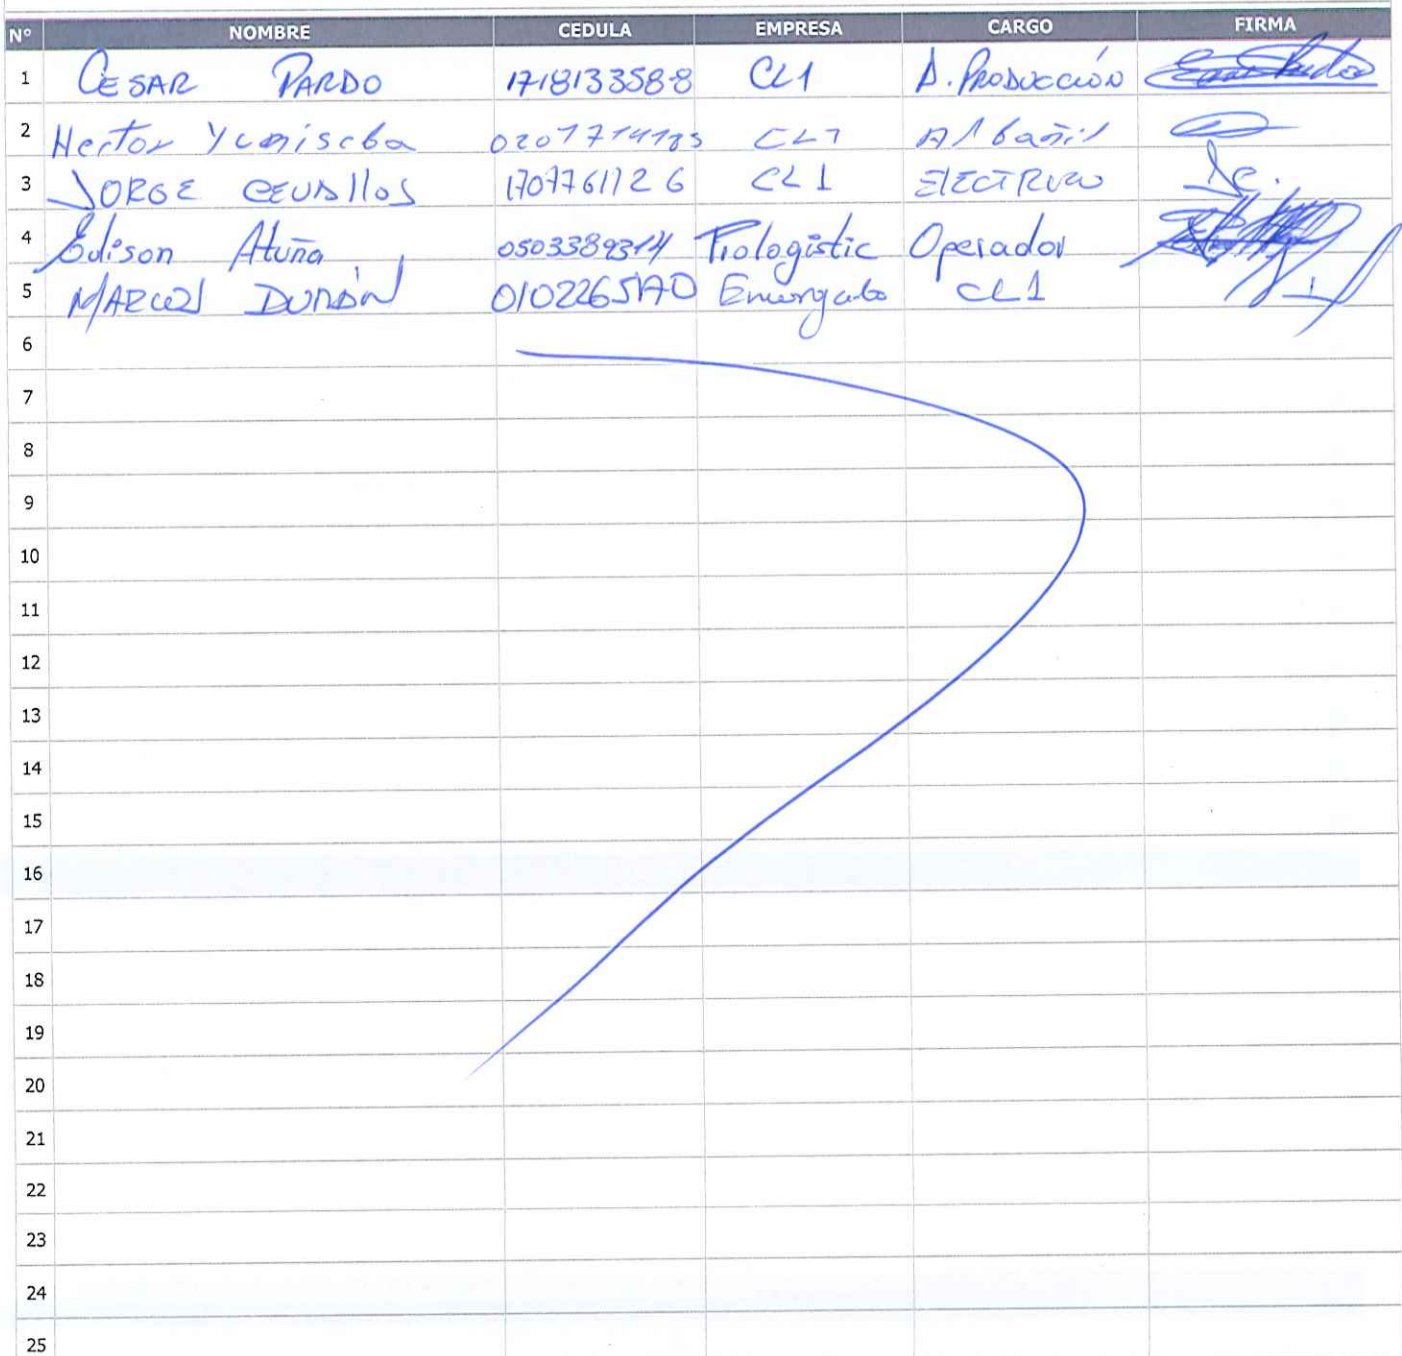 N° NOMBRE CEDULA EMPRESA CARGO FIRMA
1 CESAR PARDO 171813358-8 CL1 A. PRODUCCIÓN
2 Hector Yumiseba CL1 Albañil
3 JORGE CEVALLOS 1707761126 CL1 ELECTRICO
4 Edison Atuña 0503389314 Prologistic Operador
5 MARCOS DURÁN 0102265170 Encargado CL1
6
7
8
9
10
11
12
13
14
15
16
17
18
19
20
21
22
23
24
25